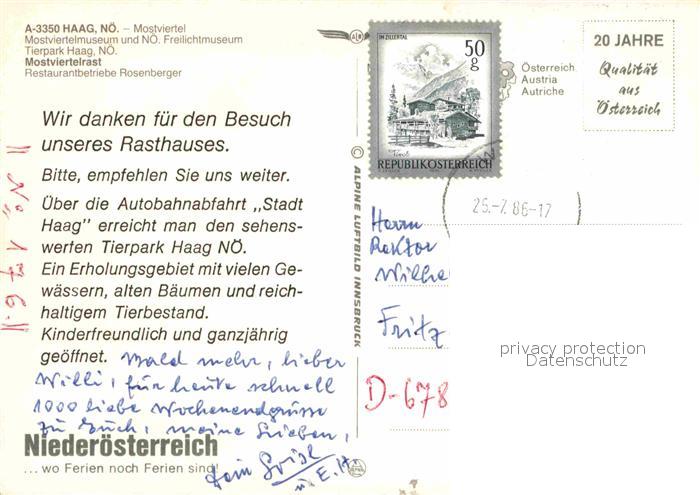 A-3350 HAAG, NÖ. – Mostviertel
Mostviertelmuseum und NÖ. Freilichtmuseum
Tierpark Haag, NÖ.
Mostviertelrast
Restaurantbetriebe Rosenberger
Wir danken für den Besuch
unseres Rasthauses.
Bitte, empfehlen Sie uns weiter.
Über die Autobahnabfahrt „Stadt
Haag" erreicht man den sehens-
werten Tierpark Haag NÖ.
Ein Erholungsgebiet mit vielen Ge-
wässern, alten Bäumen und reich-
haltigem Tierbestand.
Kinderfreundlich und ganzjährig
geöffnet.
Bald mehr, lieber
Willi, für heute schnell
1000 liebe Wochenendgrüsse
zu Euch, meine Lieben,
Niederösterreich
... wo Ferien noch Ferien sind!
Dein
u. E. H.
© ALPINE LUFTBILD INNSBRUCK
IM ZILLERTAL
50
g
Tirol
REPUBLIK ÖSTERREICH
Österreich
Austria
Autriche
20 JAHRE
Qualität
aus
Österreich
25.-7.86-17
Herrn
Rektor
Wilhe
Fritz
D-678
privacy protection
Datenschutz